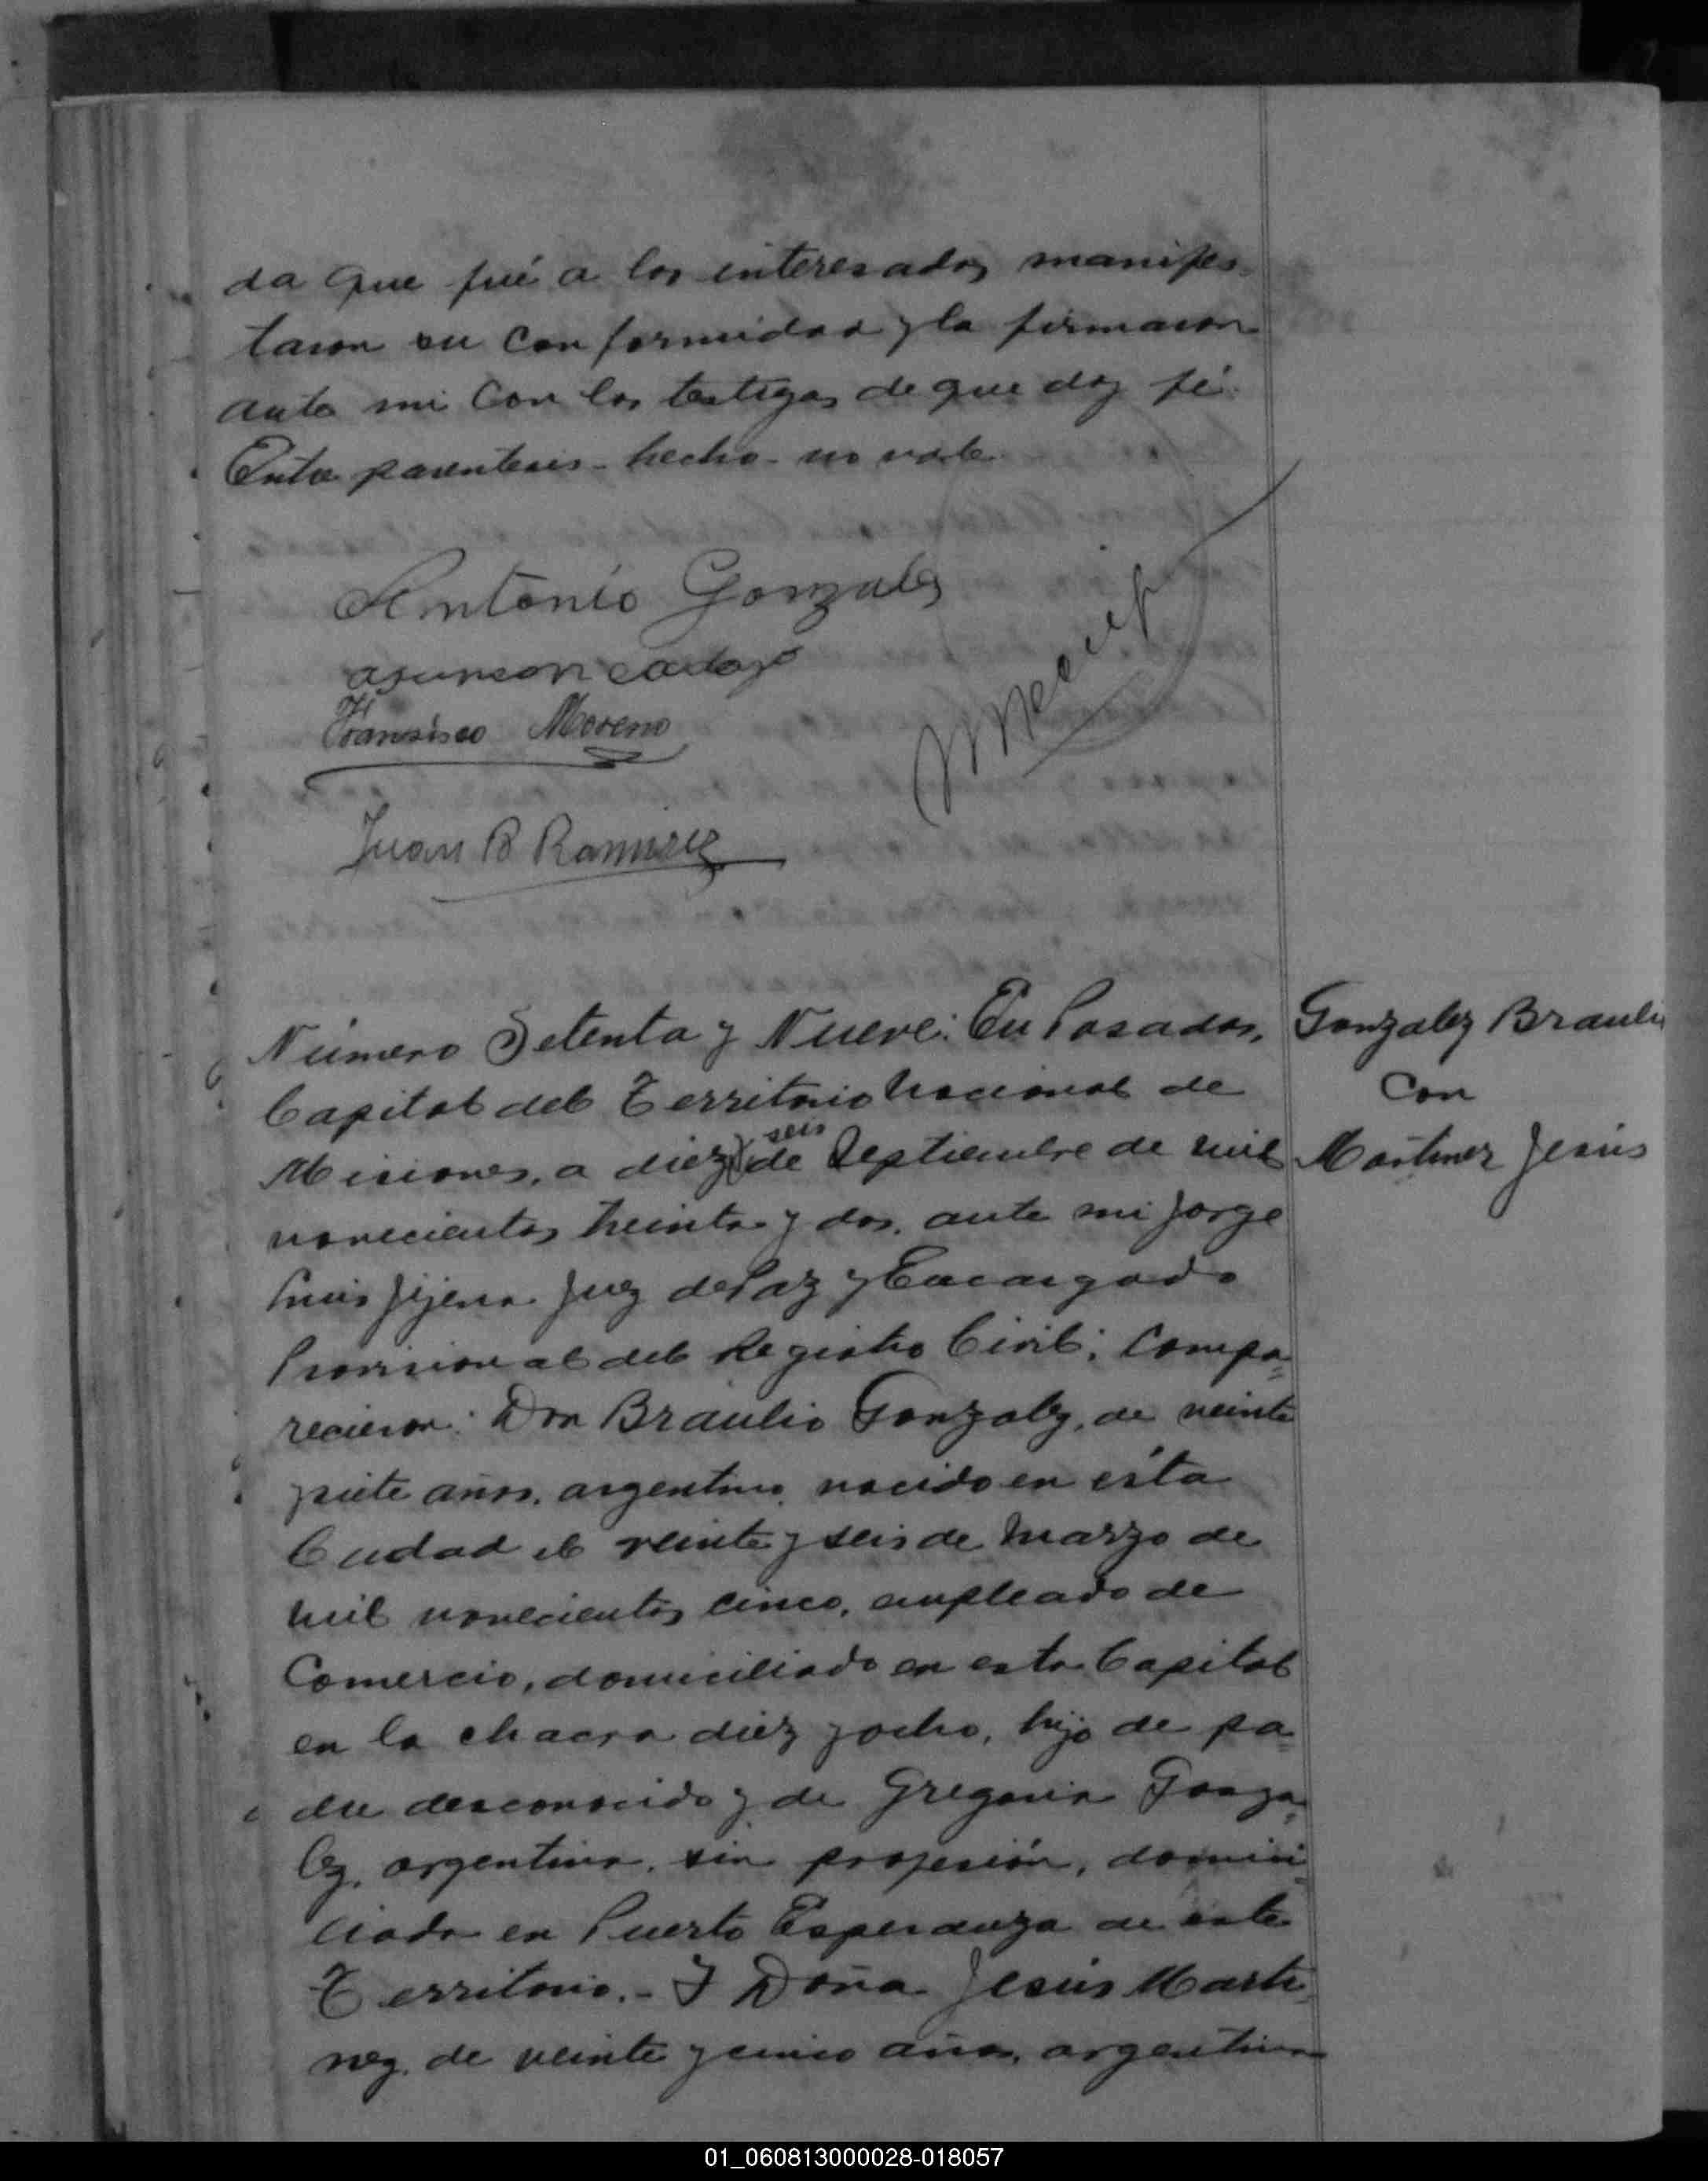 da que fué a los interesados manifes-
taron su conformidad y la firmaron
ante mi con los testigos de que doy fé.
Entre parentesis - hecho - no vale.
Antonio Gonzalez
Francisco Moreno
Juan B Ramirez
Número Setenta y Nueve: En Posadas,
Capital del Territorio Nacional de
Misiones, a diez y seis de Septiembre de mil
novecientos treinta y dos, ante mi Jorge
Luis Jijena Juez de Paz y Encargado
Provisional del Registro Civil; Compa=
recieron: Don Braulio Gonzalez, de veinte
siete años, argentino, nacido en ésta
Ciudad el veinte y seis de Marzo de
mil novecientos cinco, empleado de
Comercio, domiciliado en esta Capital
en la chacra diez y ocho, hijo de pa=
dre desconocido y de Gregoria Gonza=
lez, argentina, sin profesión, domici
liada en Puerto Esperanza de este
Territorio.- Y Doña Jesús Marti
nez, de veinte y cinco años, argentina
Gonzalez Braulio
Con
Martinez Jesús
01_060813000028-018057